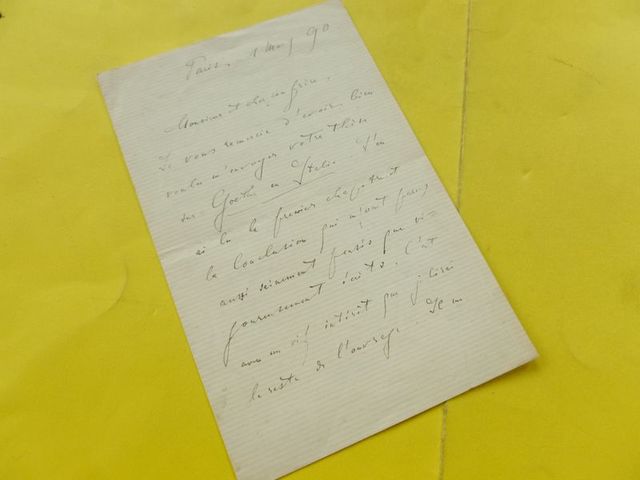 Paris, 1 Mai 90
Monsieur et cher confrère,
Je vous remercie d'avoir bien
voulu m'envoyer votre thèse
sur Goethe en Italie. J'en
ai lu le premier chap. et
la Conclusion qui m'ont paru
aussi sainement pensés que vi-
goureusement écrits. C'est
avec un vif intérêt que je lirai
le reste de l'ouvrage. Je